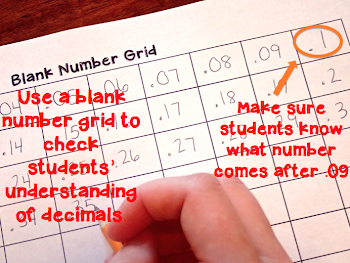 Blank Number Grid
.04 .05 .06 .07 .08 .09 .1
.14 .15 .17 .18 .2
.26 .27 .3
.35
Use a blank
number grid to
check
students'
understanding
of decimals
Make sure
students know
what number
comes after .09